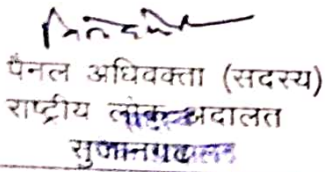 पैनल अधिवक्ता (सदस्य)
राष्ट्रीय लोक अदालत